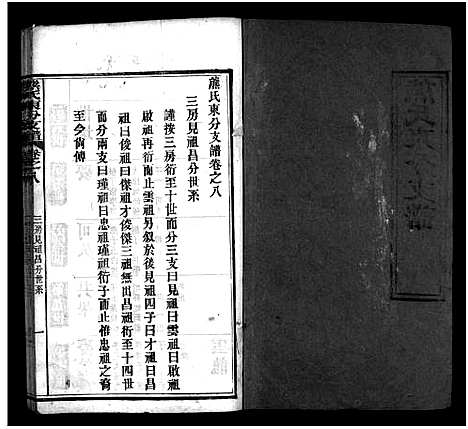 熊氏東分支譜卷之八
三房見祖昌分世系
謹按三房衍至十世而分三支曰見祖曰雲祖曰啟祖
啟祖再衍而止雲祖另敘於後見祖四子曰才祖曰昌
祖曰俊祖曰傑祖才俊傑三祖無出昌祖衍至十四世
而分兩支曰瑾祖曰忠祖瑾祖衍子而止惟忠祖之裔
至今尚傳
熊氏東分支譜
卷之八
三房見祖昌分世系
一